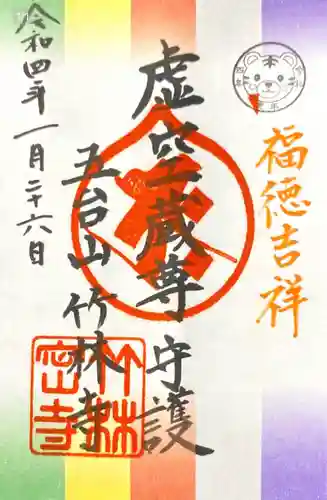 福徳吉祥
虚空蔵尊 守護
五台山 竹林寺
令和四年一月二十六日
竹林
密寺